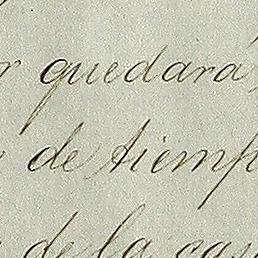 r quedará
de tiemp
de la cas